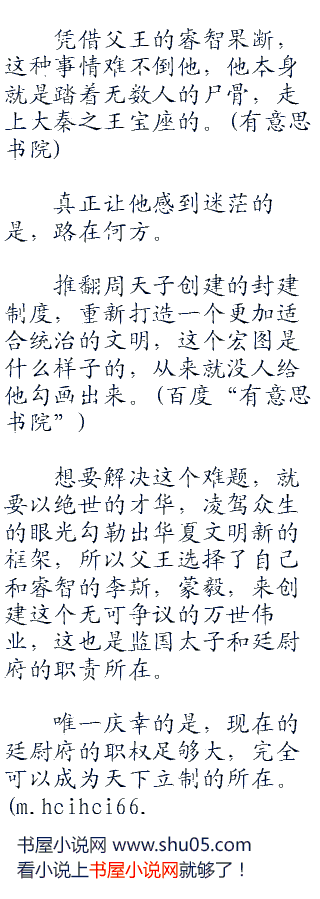 凭借父王的睿智果断，
这种事情难不倒他，他本身
就是踏着无数人的尸骨，走
上大秦之王宝座的。(有意思
书院)
真正让他感到迷茫的
是，路在何方。
推翻周天子创建的封建
制度，重新打造一个更加适
合统治的文明，这个宏图是
什么样子的，从来就没人给
他勾画出来。(百度“有意思
书院”)
想要解决这个难题，就
要以绝世的才华，凌驾众生
的眼光勾勒出华夏文明新的
框架，所以父王选择了自己
和睿智的李斯，蒙毅，来创
建这个无可争议的万世伟
业，这也是监国太子和廷尉
府的职责所在。
唯一庆幸的是，现在的
廷尉府的职权足够大，完全
可以成为天下立制的所在。
(m.hcihci66.
书屋小说网 www.shu05.com
看小说上书屋小说网就够了！